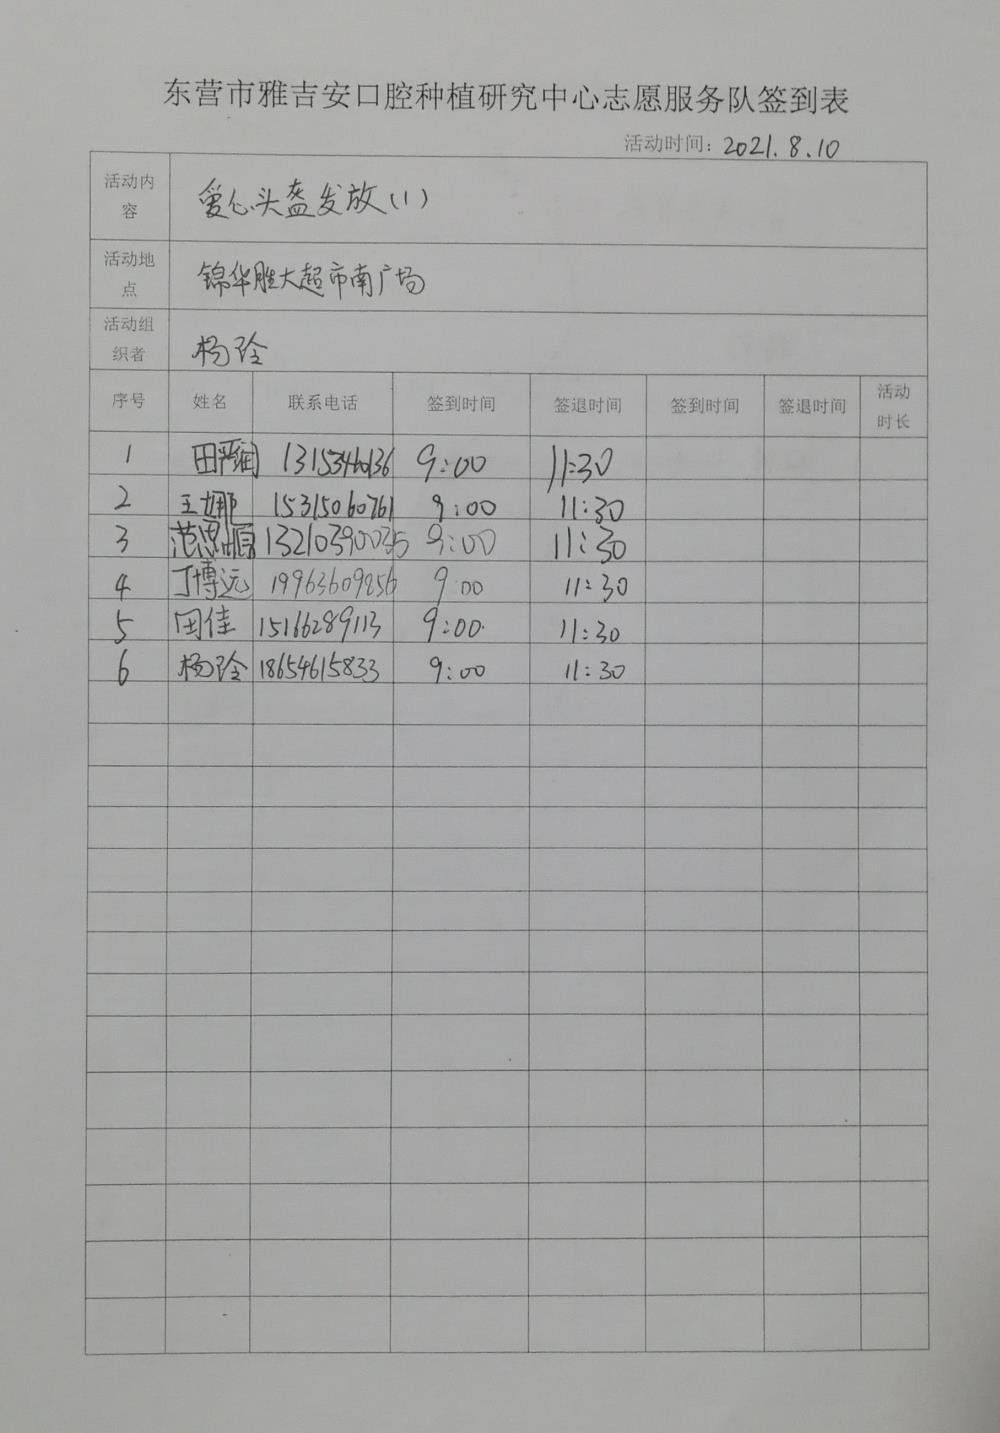 东营市雅吉安口腔种植研究中心志愿服务队签到表
活动时间：2021.8.10
活动内容 爱心头盔发放(1)
活动地点 锦华胜大超市南广场
活动组织者 杨玲
序号 姓名 联系电话 签到时间 签退时间 签到时间 签退时间 活动时长
1 田 13153460136 9:00 11:30
2 王娜 15315060761 9:00 11:30
3 范思 13210390035 9:00 11:30
4 丁博远 19963609256 9:00 11:30
5 田佳 15166289113 9:00 11:30
6 杨玲 18654615833 9:00 11:30